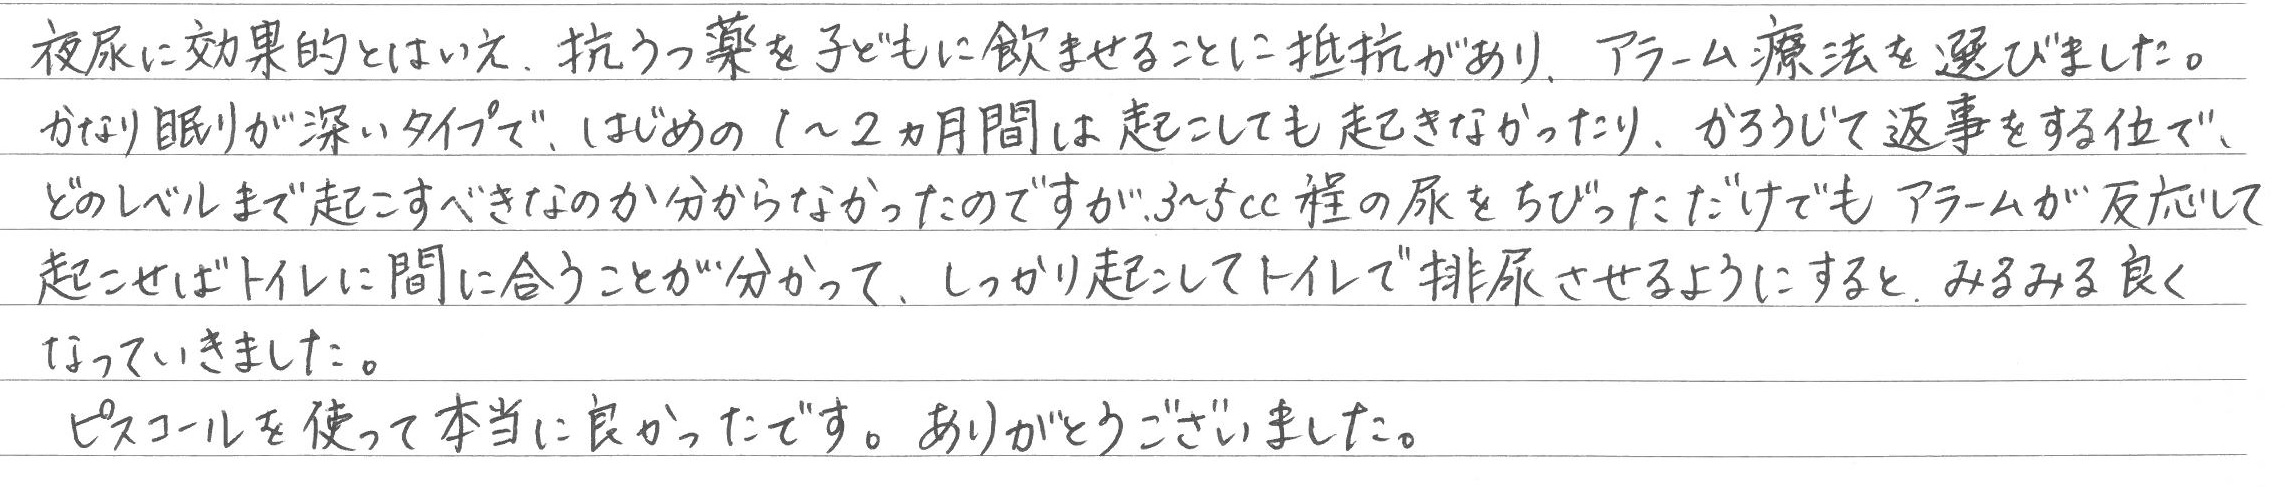 夜尿に効果的とはいえ、抗うつ薬を子どもに飲ませることに抵抗があり、アラーム療法を選びました。
かなり眠りが深いタイプで、はじめの1～2ヵ月間は起こしても起きなかったり、かろうじて返事をする位で、
どのレベルまで起こすべきなのか分からなかったのですが、3～5cc程の尿をちびっただけでもアラームが反応して
起こせばトイレに間に合うことが分かって、しっかり起こしてトイレで排尿させるようにすると、みるみる良く
なっていきました。
ピスコールを使って本当に良かったです。ありがとうございました。